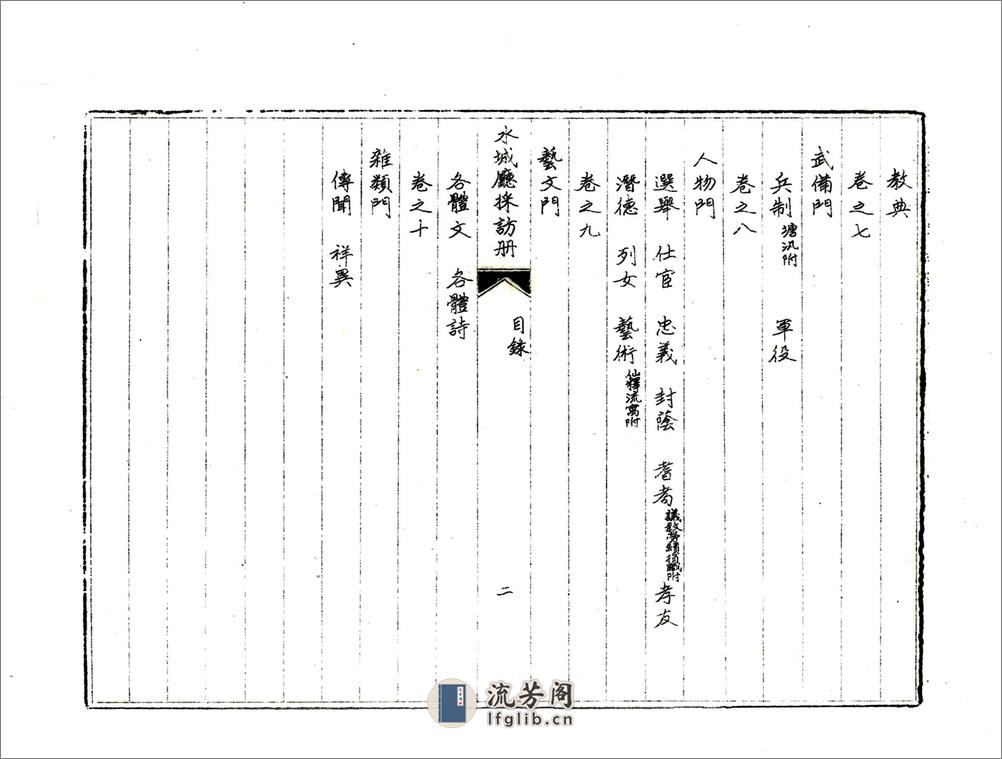 教典
卷之七
武備門
兵制 塘汛附 軍役
卷之八
人物門
選舉 仕宦 忠義 封蔭 耆耇 議敘勞績損職附 孝友
潛德 列女 藝術 仙釋流寓附
卷之九
藝文門
水城廳採訪册 目錄 二
各體文 各體詩
卷之十
雜類門
傳聞 祥異
流芳阁
lfglib.cn